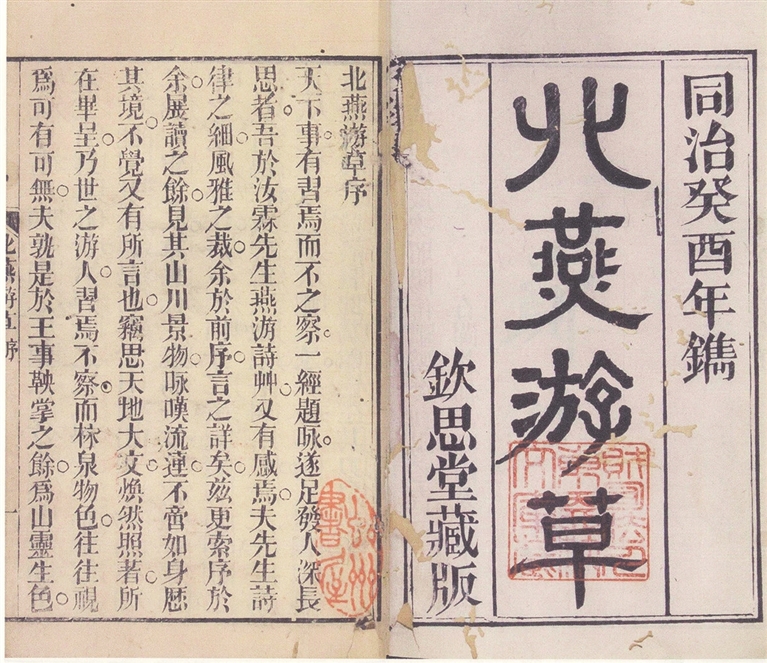 同治癸酉年鐫
北燕游草
欽思堂藏版
北燕游草序
天下事有習焉而不之察一經題咏遂足發人深長
思者吾於汝霖先生燕游詩艸又有感焉夫先生詩
律之細風雅之裁余於前序言之詳矣茲更索序於
余展讀之餘見其山川景物咏嘆流連不啻如身厯
其境不覺又有所言也竊思天地大文煥然照著所
在畢呈乃世之游人習焉不察而林泉物色往往視
爲可有可無夫孰是於王事鞅掌之餘爲山靈生色
北燕游草 序 一